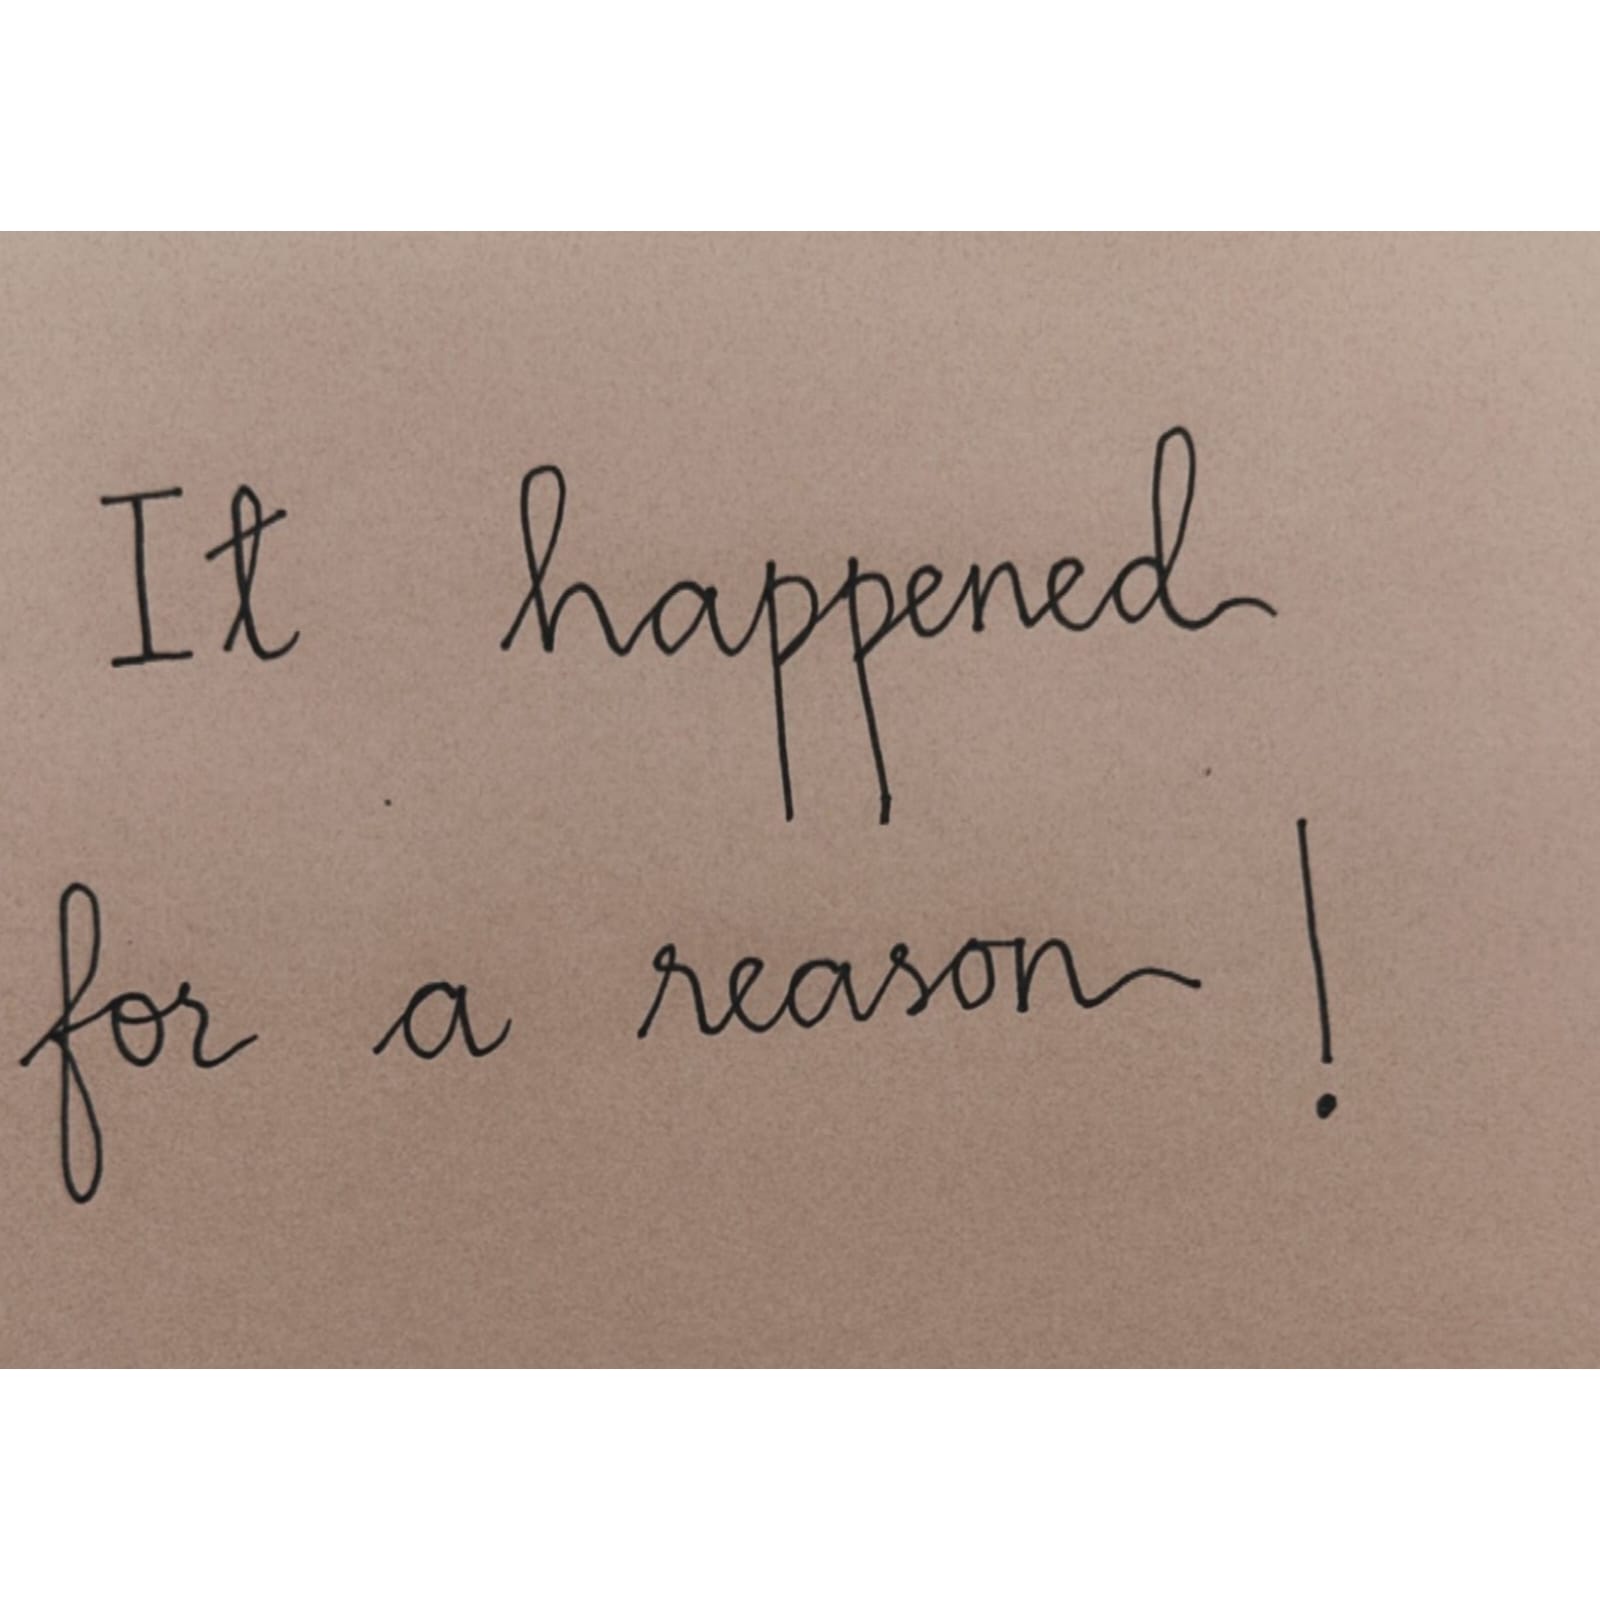 It happened
for a reason!